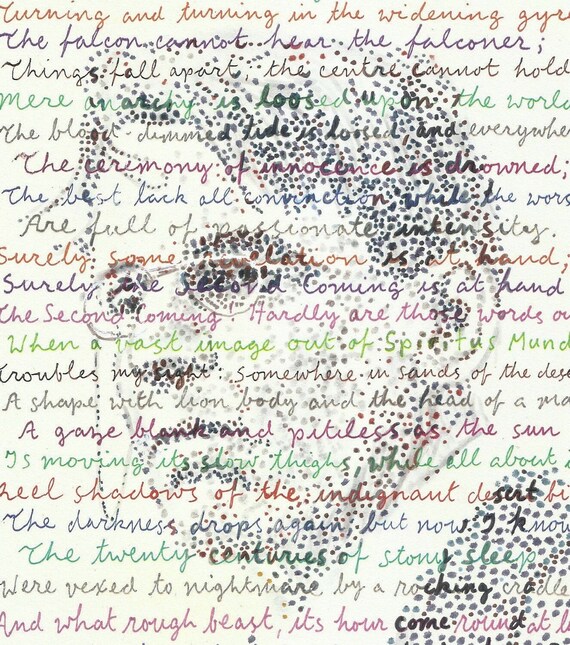 Turning and turning in the widening gyre
The falcon cannot hear the falconer;
Things fall apart; the centre cannot hold
Mere anarchy is loosed upon the world
The blood-dimmed tide is loosed, and everywhe
The ceremony of innocence is drowned;
The best lack all conviction while the wors
Are full of passionate intensity.
Surely some revelation is at hand;
Surely the Second Coming is at hand
The Second Coming Hardly are those words ou
When a vast image out of Spiritus Mund
troubles my sight: somewhere in sands of the dese
A shape with lion body and the head of a ma
A gaze blank and pitiless as the sun
Is moving its slow thighs, while all about i
reel shadows of the indignant desert bi
The darkness drops again, but now I know
The twenty centuries of stony sleep
Were vexed to nightmare by a rocking cradle
And what rough beast, its hour come round at la